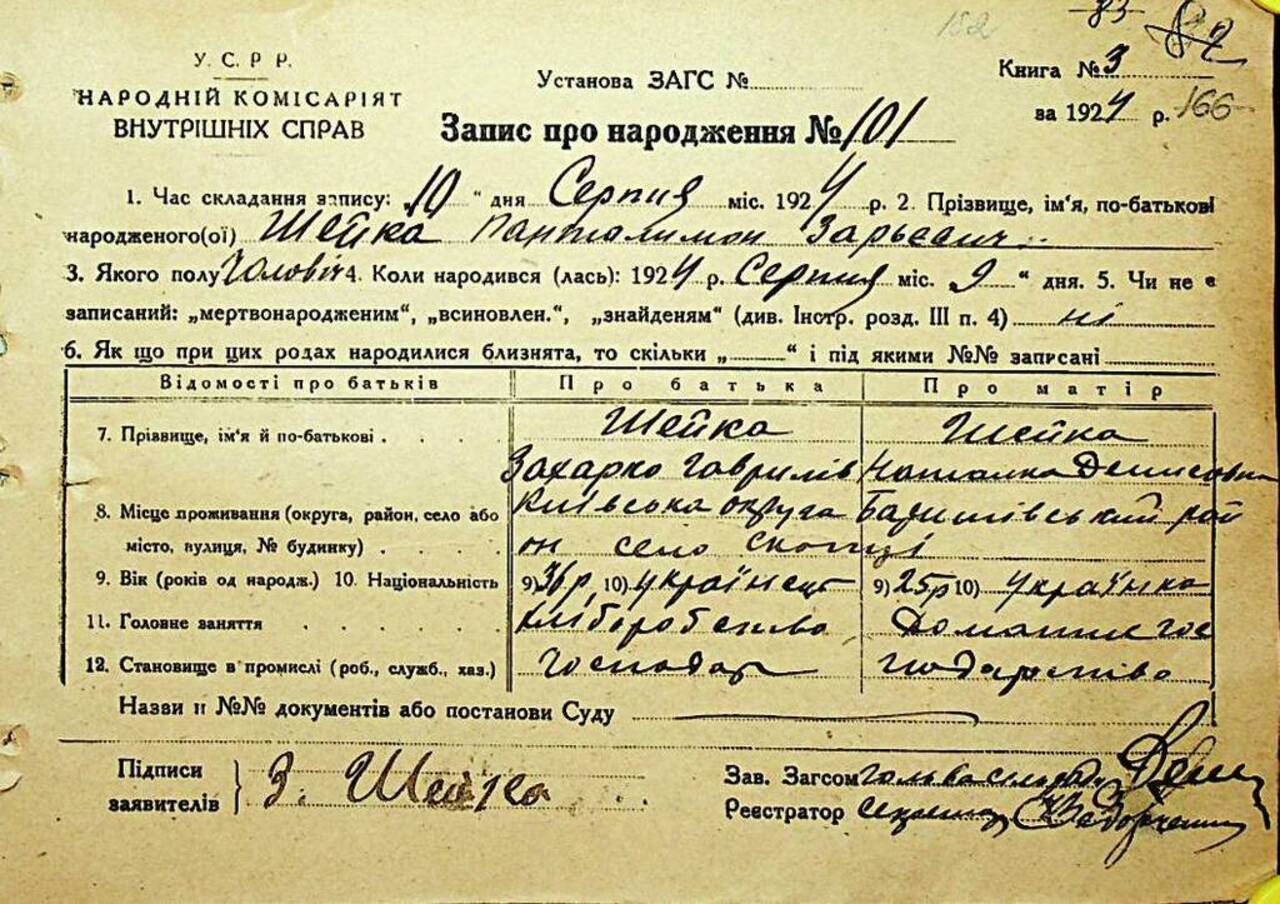 152 83 82
У. С. Р. Р.
НАРОДНІЙ КОМІСАРІЯТ
ВНУТРІШНІХ СПРАВ
Установа ЗАГС №
Книга № 3
за 1924 р. 166
Запис про народження № 101
1. Час складання запису: 10 " дня Серпня міс. 1924 р. 2. Прізвище, ім'я, по-батькові
народженого(ої) Шейка Панталимон Зарьевич
3. Якого полу Чоловіч 4. Коли народився (лась): 1924 р. Серпня міс. 9 " дня. 5. Чи не є
записаний: „мертвонародженим“, „всиновлен.“, „знайденям“ (див. Інстр. розд. III п. 4) ні
6. Як що при цих родах народилися близнята, то скільки „ “ і під якими №№ записані
Відомості про батьків Про батька Про матір
7. Прізвище, ім'я й по-батькові Шейка Шейка
Захарко Гаврилів Наталка Денисовна
8. Місце проживання (округа, район, село або Київська округа Баришівський рай
місто, вулиця, № будинку) он село Скопці
9. Вік (років од народж.) 10. Національність 9) 36 р, 10) українець 9) 25 р 10) Українка
11. Головне заняття хліборобство Домашнє гос
12. Становище в промислі (роб., служб., хаз.) Господар подарство
Назви и №№ документів або постанови Суду
Підписи
заявителів } З. Шейка
Зав. Загсом
Реєстратор секретар